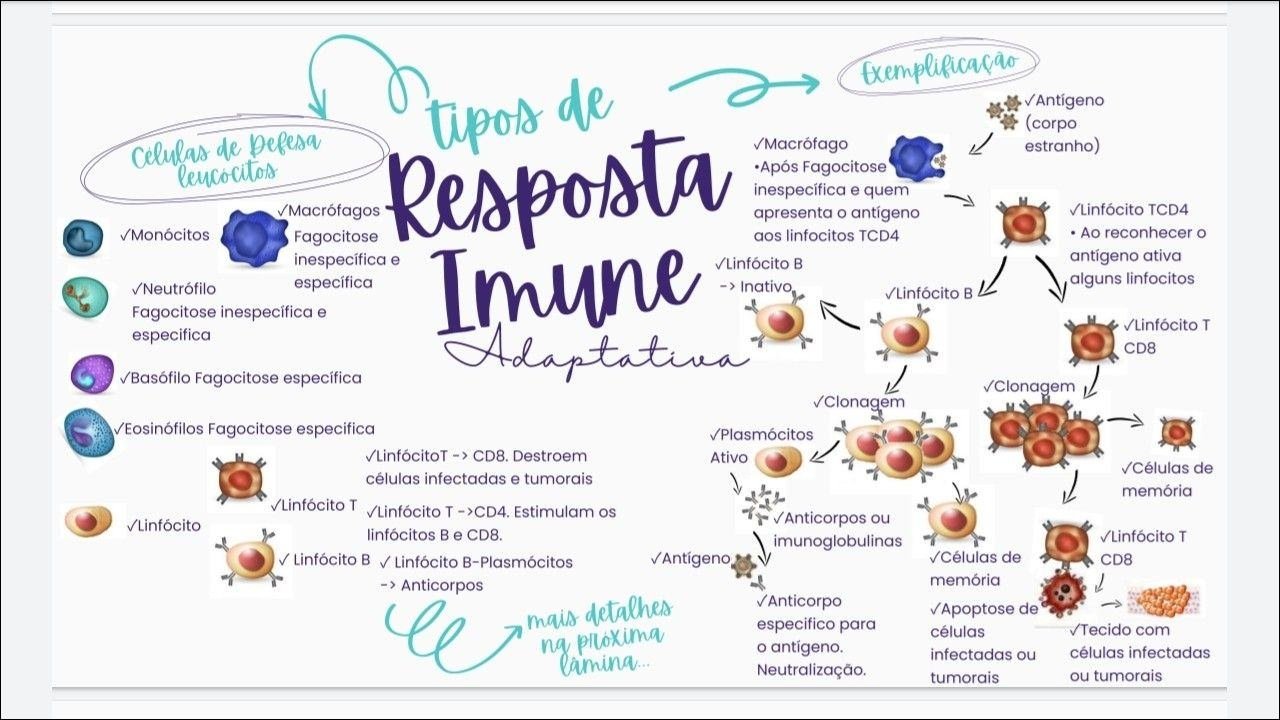 tipos de
Resposta
Imune
Adaptativa
Células de Defesa
leucócitos
✓Monócitos
✓Macrófagos
Fagocitose
inespecífica e
específica
✓Neutrófilo
Fagocitose inespecífica e
especifica
✓Basófilo Fagocitose específica
✓Eosinófilos Fagocitose especifica
✓Linfócito
✓Linfócito T
✓ Linfócito B
✓LinfócitoT -> CD8. Destroem
células infectadas e tumorais
✓Linfócito T ->CD4. Estimulam os
linfócitos B e CD8.
✓ Linfócito B-Plasmócitos
-> Anticorpos
mais detalhes
na próxima
lâmina...
Exemplificação
✓Antígeno
(corpo
estranho)
✓Macrófago
•Após Fagocitose
inespecífica e quem
apresenta o antígeno
aos linfocitos TCD4
✓Linfócito TCD4
• Ao reconhecer o
antígeno ativa
alguns linfocitos
✓Linfócito B
-> Inativo
✓Linfócito B
✓Linfócito T
CD8
✓Clonagem
✓Clonagem
✓Plasmócitos
Ativo
✓Células de
memória
✓Anticorpos ou
imunoglobulinas
✓Antígeno
✓Células de
memória
✓Linfócito T
CD8
✓Anticorpo
especifico para
o antígeno.
Neutralização.
✓Apoptose de
células
infectadas ou
tumorais
✓Tecido com
células infectadas
ou tumorais